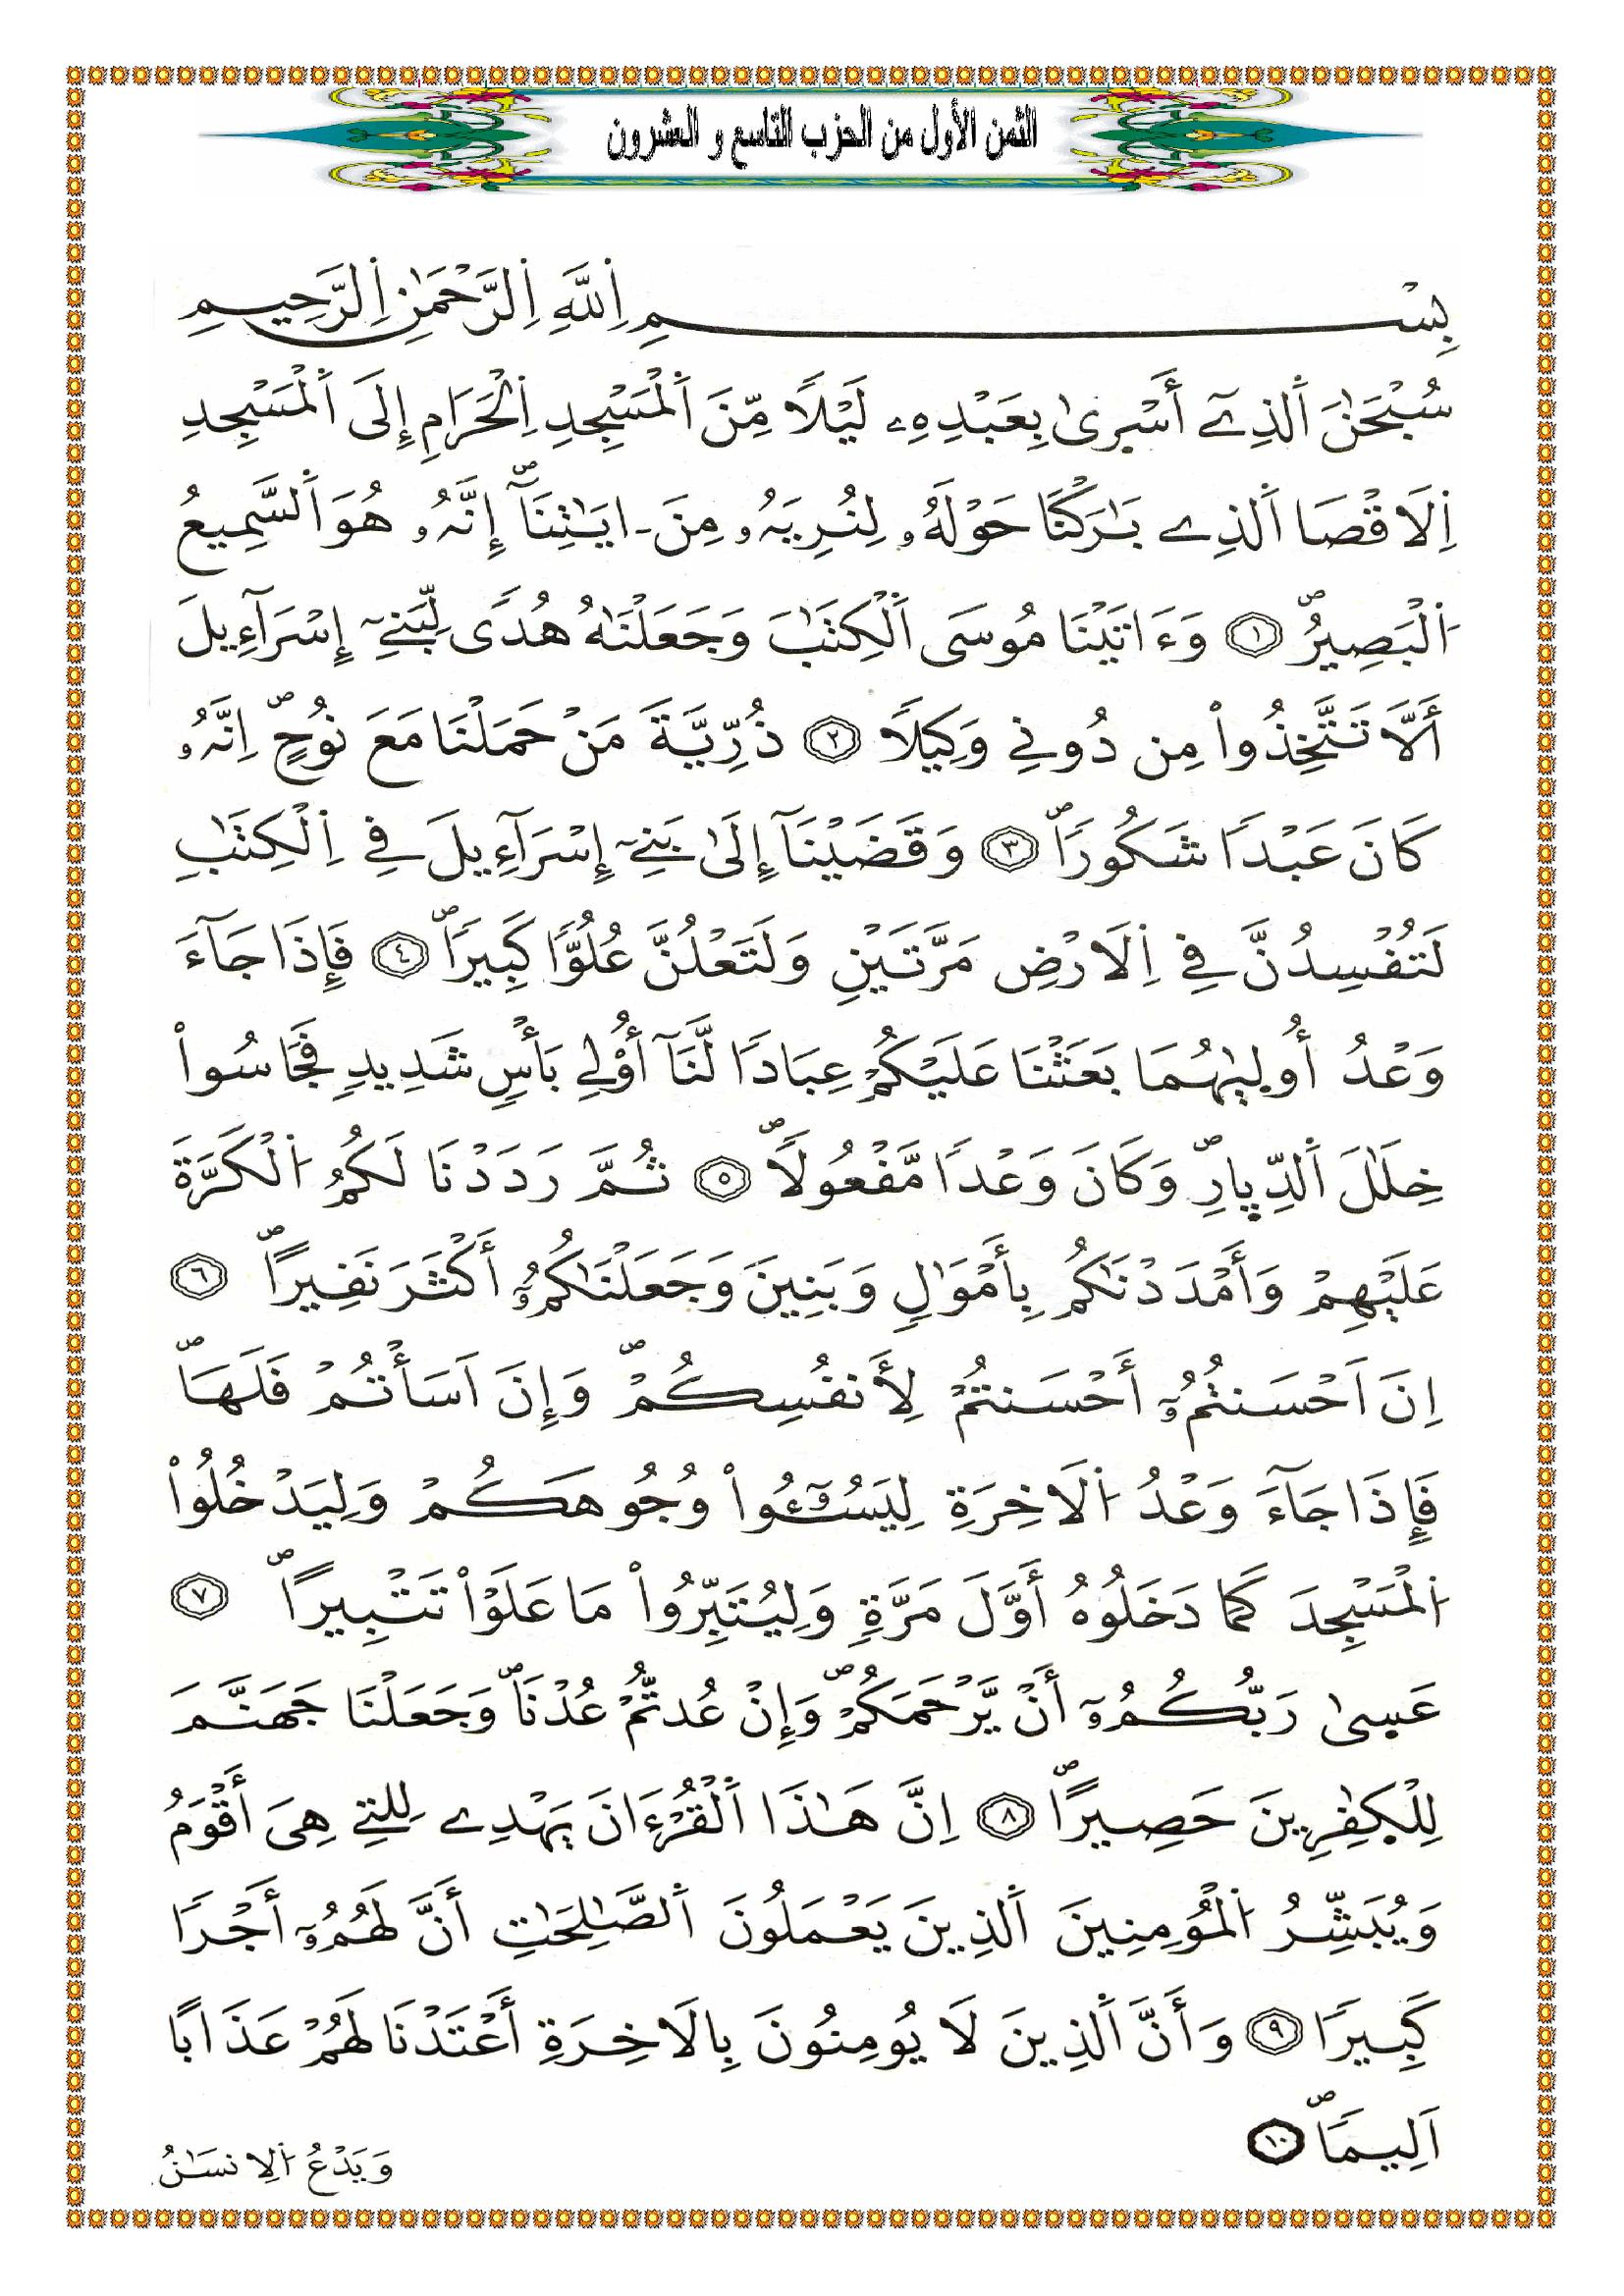 الثمن الأول من الحزب التاسع و العشرون
بِسْمِ اِللَّهِ اِلرَّحْمَٰنِ اِلرَّحِيمِ
سُبْحَٰنَ اَلذِےٓ أَسْرىٰ بِعَبْدِهِۦ لَيْلًا مِّنَ اَلْمَسْجِدِ اِلْحَرَامِ إِلَى اَلْمَسْجِدِ
اِلَاقْصَا اَلذِے بَٰرَكْنَا حَوْلَهُۥ لِنُرِيَهُۥ مِنَ ـ ايَٰتِنَآۖ إِنَّهُۥ هُوَ اَلسَّمِيعُ
اُلْبَصِيرُۖ ١ وَءَاتَيْنَا مُوسَى اَلْكِتَٰبَ وَجَعَلْنَٰهُ هُدًى لِّبَنِےٓ إِسْرَآءِيلَ
أَلَّا تَتَّخِذُواْ مِن دُونِے وَكِيلًا ٢ ذُرِّيَّةَ مَنْ حَمَلْنَا مَعَ نُوحٍۖ اِنَّهُۥ
كَانَ عَبْدًا شَكُورًاۖ ٣ وَقَضَيْنَآ إِلَىٰ بَنِےٓ إِسْرَآءِيلَ فِے اِلْكِتَٰبِ
لَتُفْسِدُنَّ فِے اِلَارْضِ مَرَّتَيْنِ وَلَتَعْلُنَّ عُلُوًّا كَبِيرًاۖ ٤ فَإِذَا جَآءَ
وَعْدُ أُولىٰهُمَا بَعَثْنَا عَلَيْكُمْ عِبَادًا لَّنَآ أُوْلِے بَأْسٍ شَدِيدٍ فَجَاسُواْ
خِلَٰلَ اَلدِّيارِۖ وَكَانَ وَعْدًا مَّفْعُولًاۖ ٥ ثُمَّ رَدَدْنَا لَكُمُ اُلْكَرَّةَ
عَلَيْهِمْ وَأَمْدَدْنَٰكُم بِأَمْوَٰلٍ وَبَنِينَ وَجَعَلْنَٰكُمُۥٓ أَكْثَرَ نَفِيرًاۖ ٦
اِنَ اَحْسَنتُمُۥٓ أَحْسَنتُمْ لِأَنفُسِكُمْۖ وَإِنَ اَسَأْتُمْ فَلَهَاۖ
فَإِذَا جَآءَ وَعْدُ اُلَاخِرَةِ لِيَسُۥٓـُٔواْ وُجُوهَكُمْ وَلِيَدْخُلُواْ
اُلْمَسْجِدَ كَمَا دَخَلُوهُ أَوَّلَ مَرَّةٍ وَلِيُتَبِّرُواْ مَا عَلَوْاْ تَتْبِيرًاۖ ٧
عَسىٰ رَبُّكُمُۥٓ أَنْ يَّرْحَمَكُمْۖ وَإِنْ عُدتُّمْ عُدْنَاۖ وَجَعَلْنَا جَهَنَّمَ
لِلْكٰفِرِينَ حَصِيرًاۖ ٨ اِنَّ هَٰذَا اَلْقُرْءَانَ يَهْدِے لِلتِے هِىَ أَقْوَمُ
وَيُبَشِّرُ اُلْمُومِنِينَ اَلذِينَ يَعْمَلُونَ اَلصَّٰلِحَٰتِ أَنَّ لَهُمُۥٓ أَجْرًا
كَبِيرًا ٩ وَأَنَّ اَلذِينَ لَا يُومِنُونَ بِالَاخِرَةِ أَعْتَدْنَا لَهُمْ عَذَابًا
اَلِيمًاۖ ١٠
وَيَدْعُ اُلِانسَٰنُ